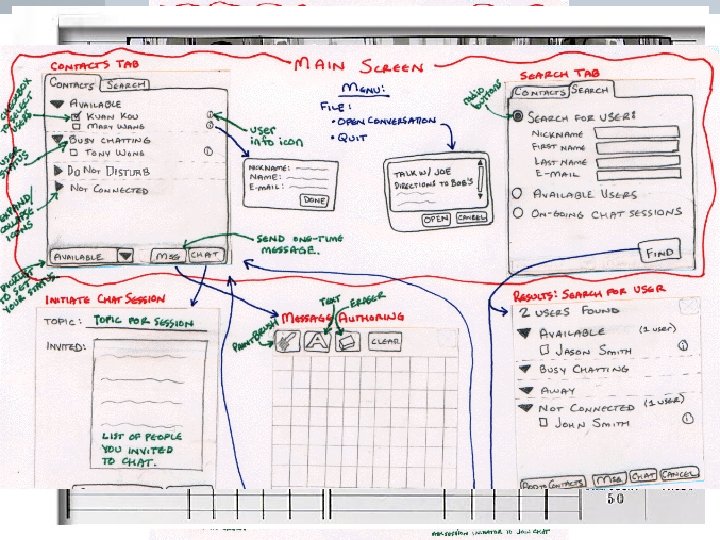 MAIN SCREEN
CONTACTS TAB
CONTACTS SEARCH
AVAILABLE
KUAN KOU
MARY WANG
BUSY CHATTING
TONY WONG
DO NOT DISTURB
NOT CONNECTED
AVAILABLE MSG CHAT
CHECKBOX TO SELECT USERS
USER STATUS
EXPAND/
COLLAPSE
ICONS
TO SET
YOUR STATUS
user
info icon
SEND ONE-TIME
MESSAGE.
MENU:
FILE:
• OPEN CONVERSATION
• QUIT
NICKNAME:
NAME:
E-MAIL:
DONE
TALK W/ JOE
DIRECTIONS TO BOB'S
OPEN CANCEL
SEARCH TAB
radio
buttons
CONTACTS SEARCH
SEARCH FOR USER:
NICKNAME
FIRST NAME
LAST NAME
E-MAIL
AVAILABLE USERS
ON-GOING CHAT SESSIONS
FIND
INITIATE CHAT SESSION
TOPIC: TOPIC FOR SESSION
INVITED:
LIST OF PEOPLE
YOU INVITED
TO CHAT.
MESSAGE AUTHORING
PAINTBRUSH
TEXT
ERASER
A
CLEAR
RESULTS: SEARCH FOR USER
2 USERS FOUND
AVAILABLE (1 user)
JASON SMITH
BUSY CHATTING
AWAY
NOT CONNECTED (1 USER)
JOHN SMITH
ADD TO CONTACTS MSG CHAT CANCEL
50
SESSION INITIATOR TO JOIN CHAT